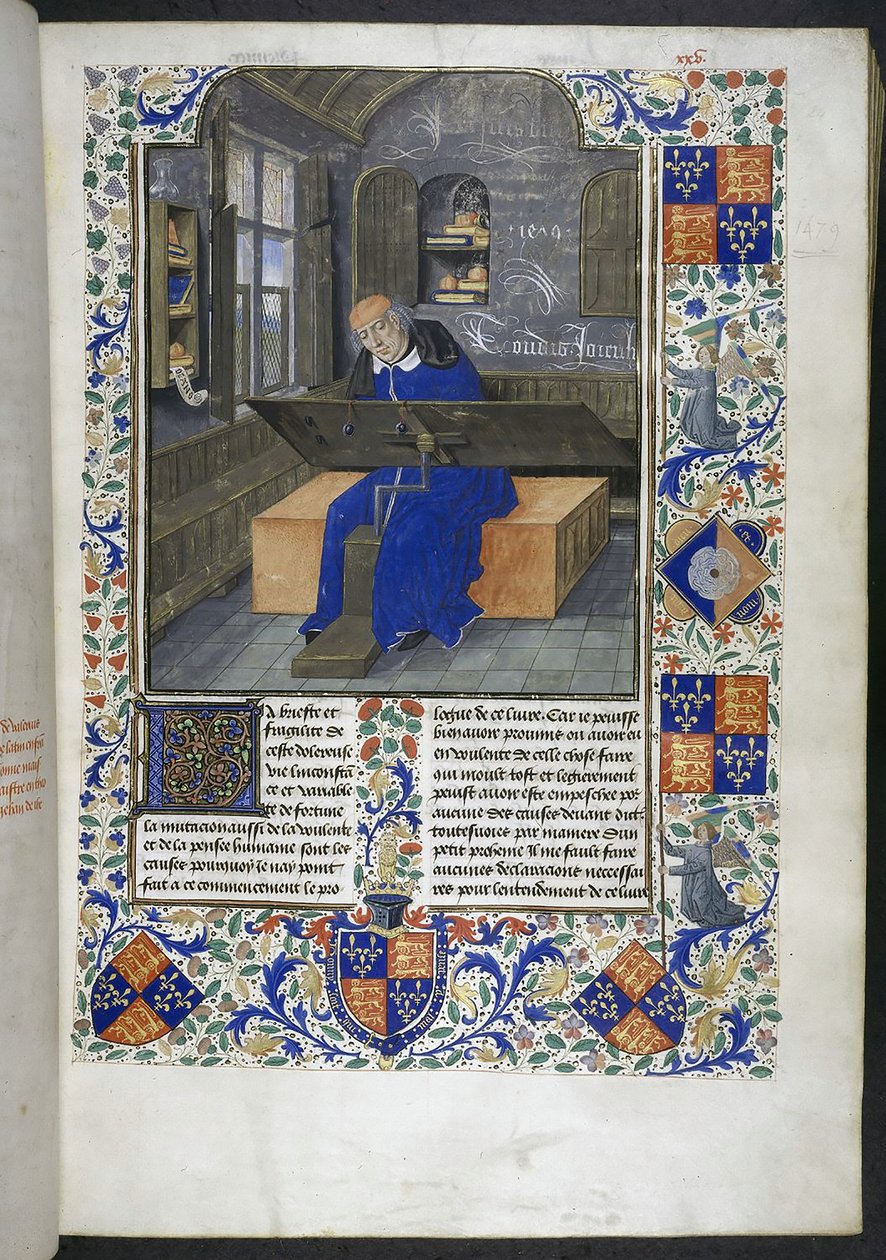 xxv.
1479
La briefte et
fragilite de
ceste dolereuse
vie linconstā
ce et variable
te de fortune
la mutacion aussi de la voulente
et de la pensee humaine sont les
causes pourquoy Ie nay point
fait a ce commencement le pro-
logue de ce liure. Car ie peuisse
bien auoir promis ou auoir eu
en voulente de celle chose faire
qui moult tost et legierement
peust auoir este empeschee par
aucune des causes deuant dict.
toutesuoies par maniere dun
petit proheme Il me fault faire
aucunes declaracions necessai
res pour lentendement de ce liure